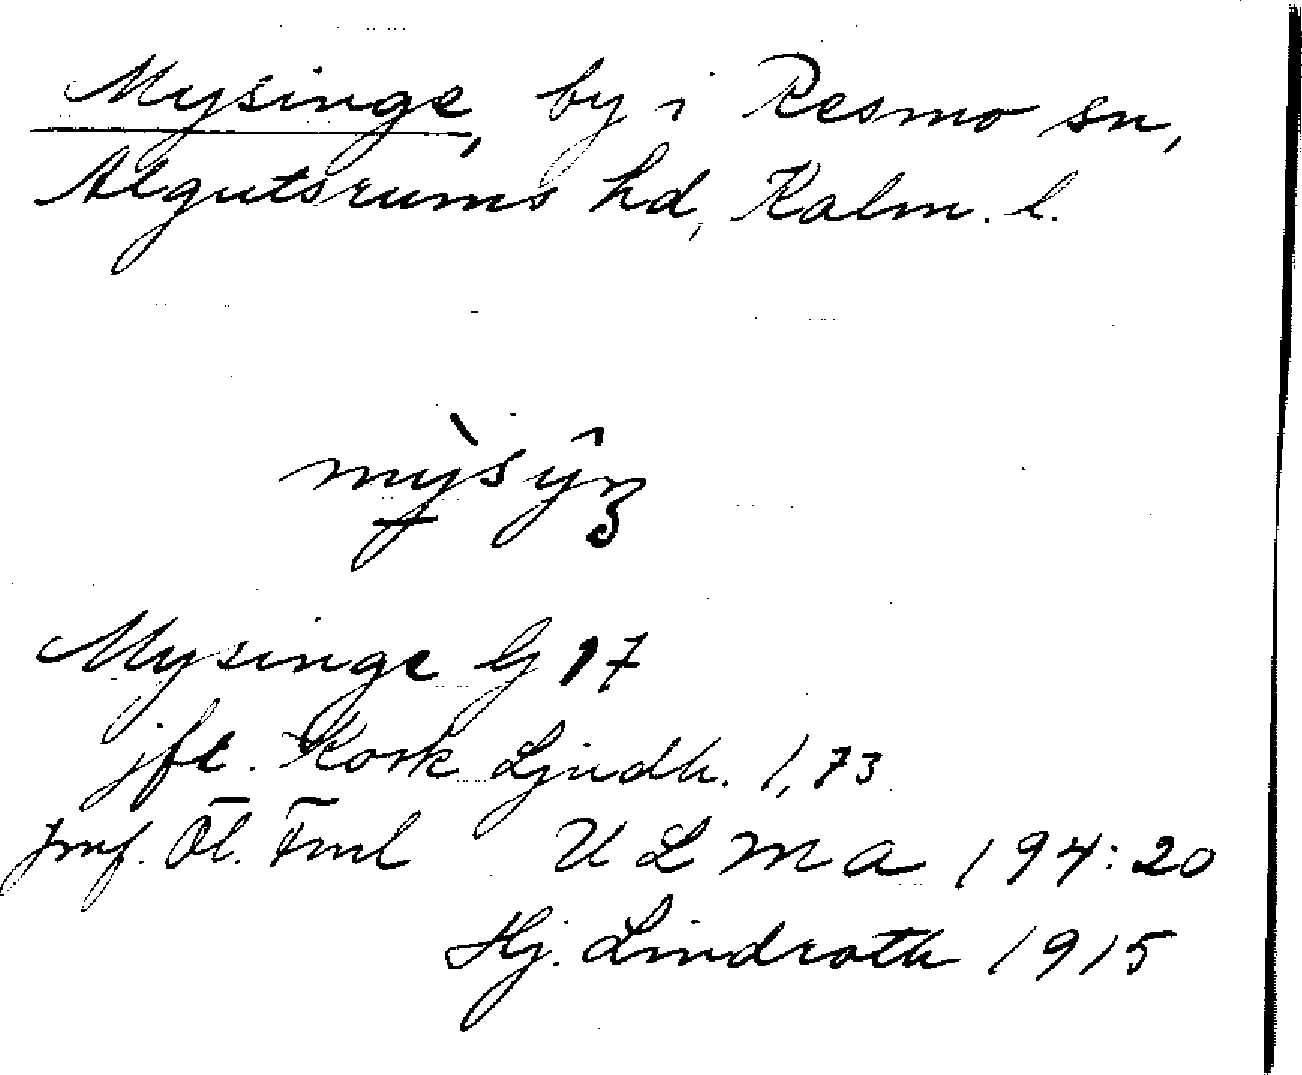 Mysinge, by i Resmo sn,
Algutsrums hd, Kalm. l.
mỳsŷŋ
Mysinge G 17
jfr. Kock Ljudh. 1,73
jmf. Öl. Fml ULMA 194:20
Hj. Lindroth 1915